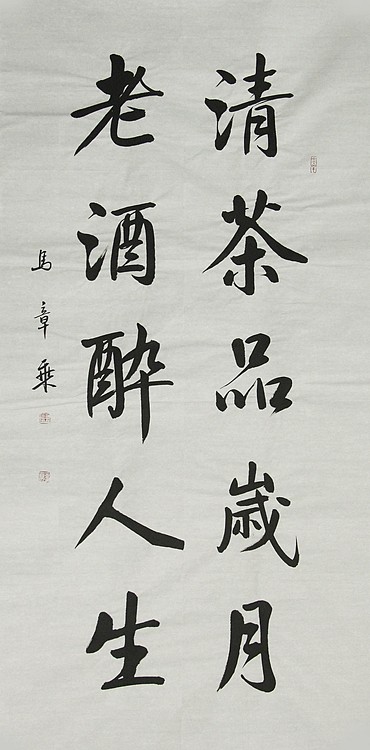 清茶品歲月
老酒醉人生
馬章乗